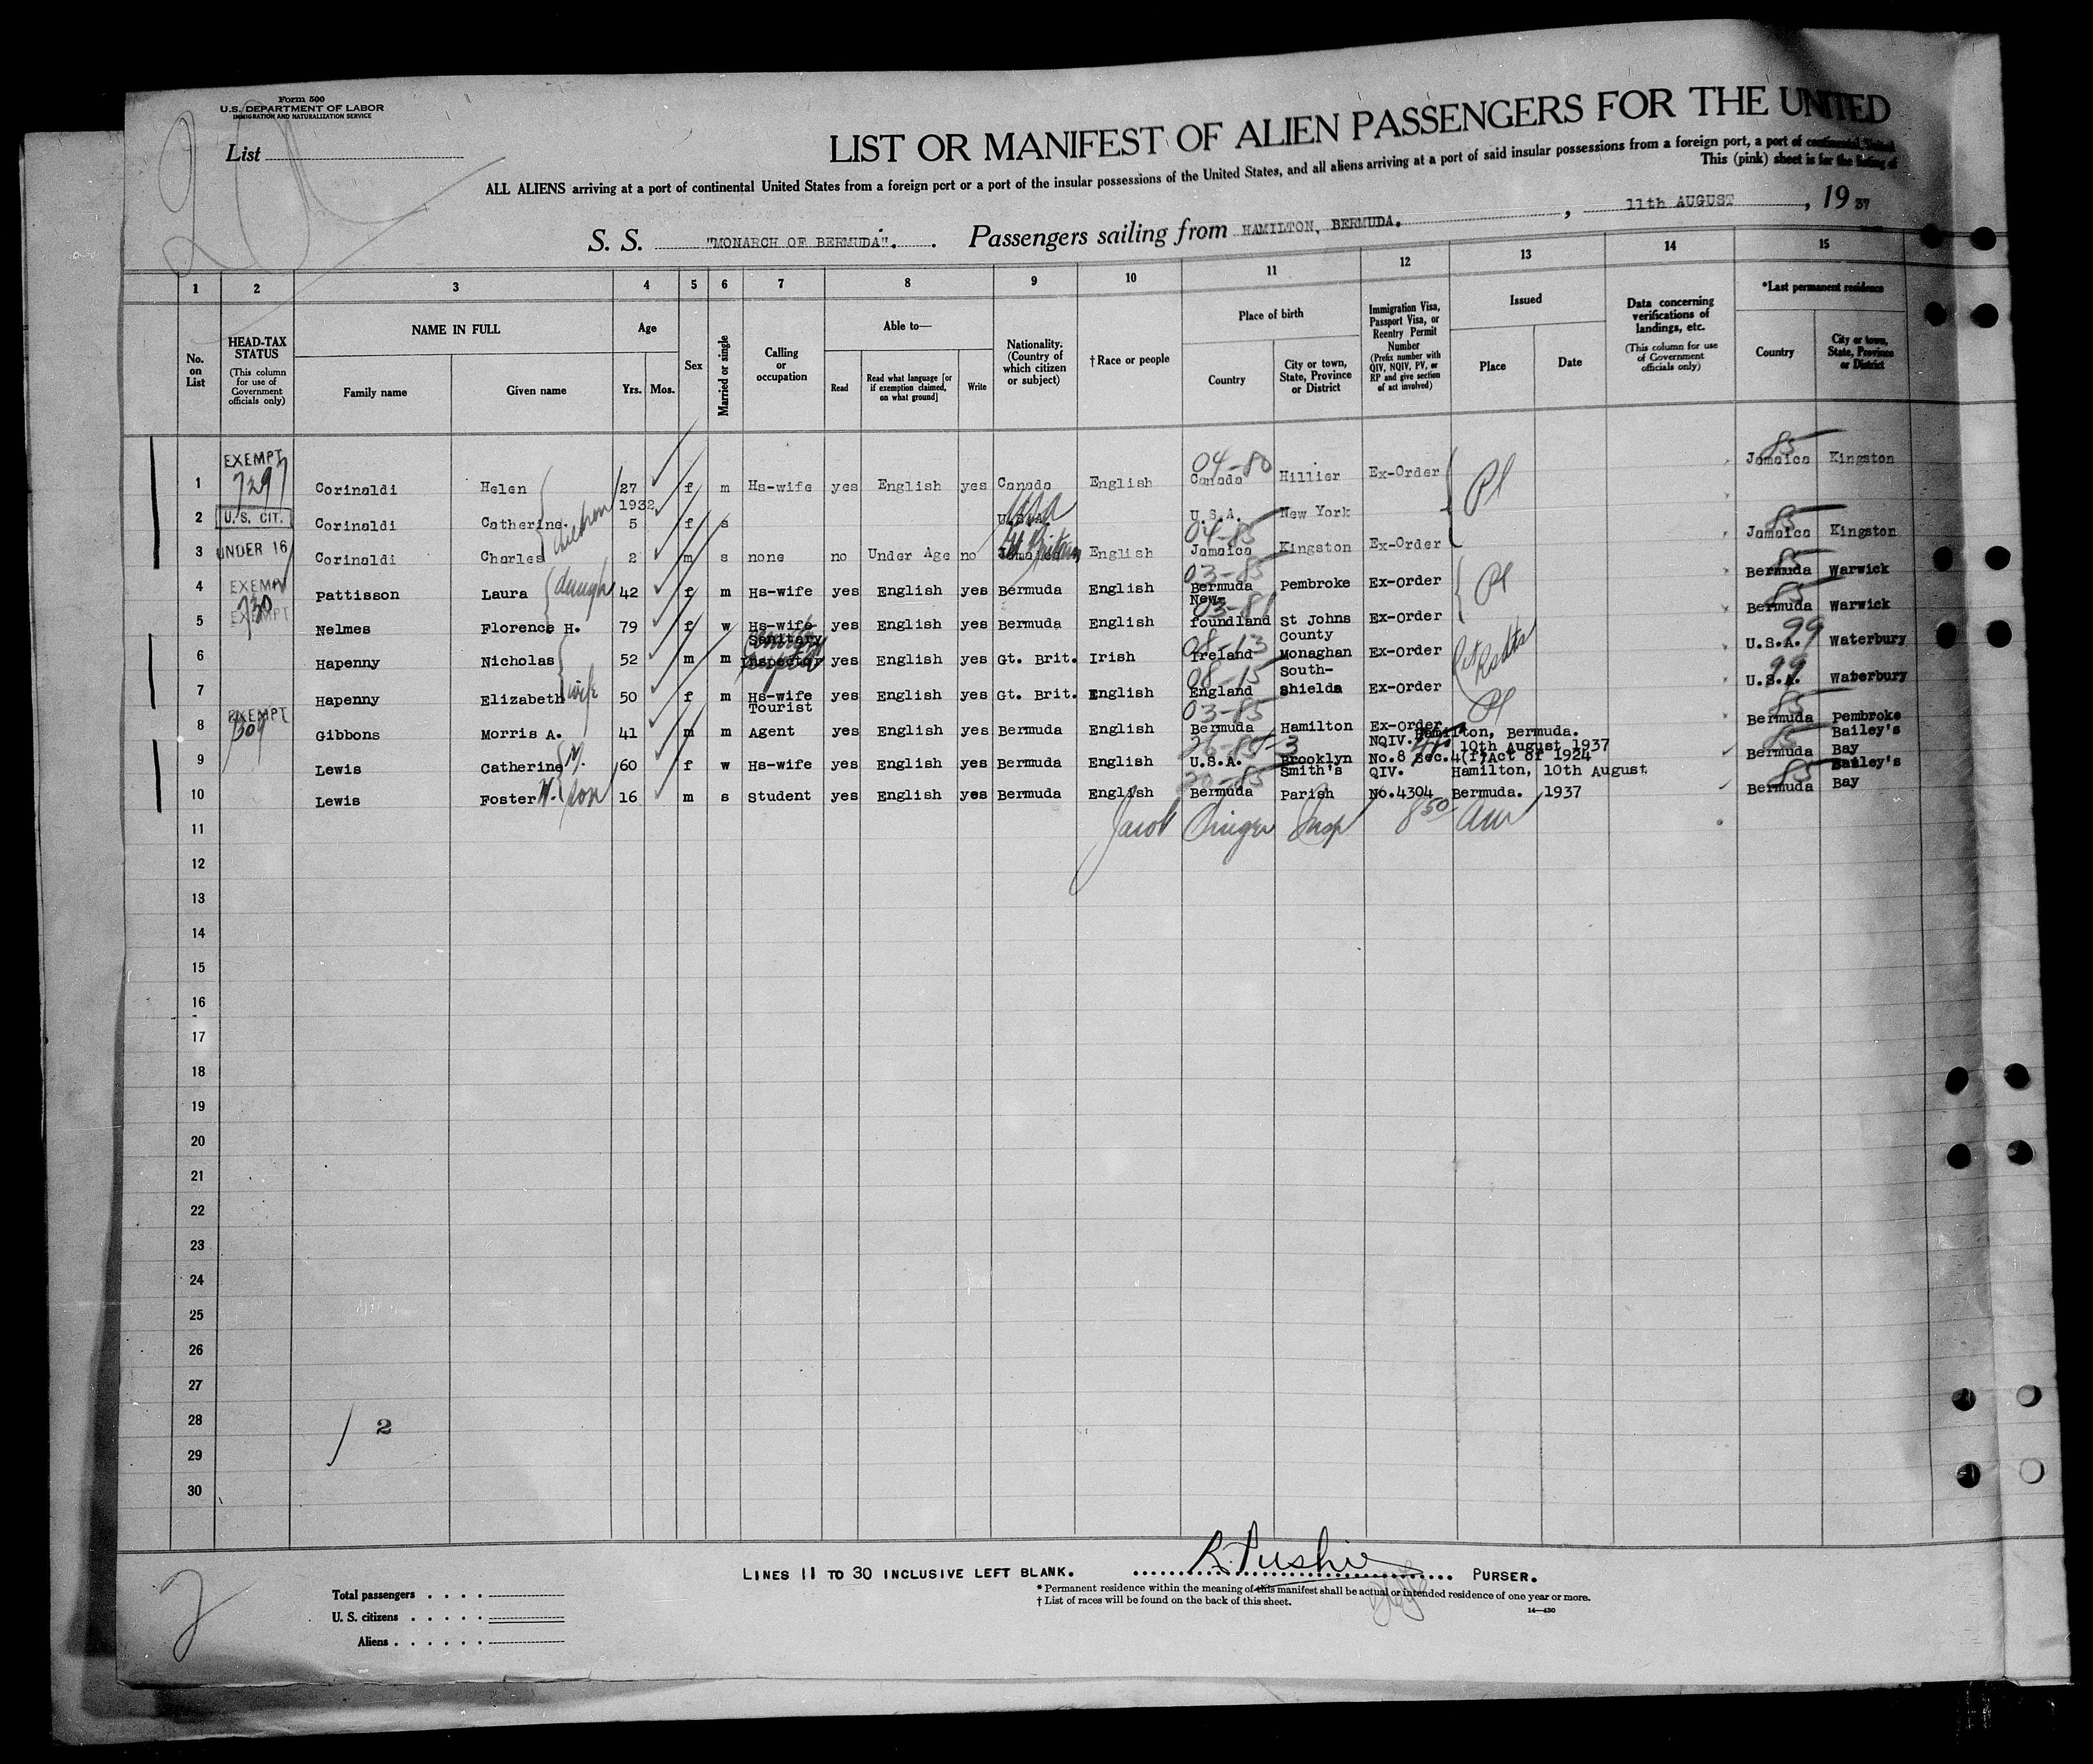 Form 500
U.S. DEPARTMENT OF LABOR
IMMIGRATION AND NATURALIZATION SERVICE
20
List
LIST OR MANIFEST OF ALIEN PASSENGERS FOR THE UNITED
ALL ALIENS arriving at a port of continental United States from a foreign port or a port of the insular possessions of the United States, and all aliens arriving at a port of said insular possessions from a foreign port, a port of continental United
This (pink) sheet is for the listing of
S. S. "MONARCH OF BERMUDA". Passengers sailing from HAMILTON, BERMUDA. , 11th AUGUST , 19 37
1 2 3 4 5 6 7 8 9 10 11 12 13 14 15
No. on List
HEAD-TAX STATUS (This column for use of Government officials only)
NAME IN FULL Family name Given name
Age Yrs. Mos.
Sex
Married or single
Calling or occupation
Able to— Read Read what language [or if exemption claimed, on what ground] Write
Nationality. (Country of which citizen or subject)
† Race or people
Place of birth Country City or town, State, Province or District
Immigration Visa, Passport Visa, or Reentry Permit Number (Prefix number with QIV, NQIV, PV, or RP and give section of act involved)
Issued Place Date
Data concerning verifications of landings, etc. (This column for use of Government officials only)
*Last permanent residence Country City or town, State, Province or District
1 EXEMPT 729 Corinaldi Helen 27 f m Hs-wife yes English yes Canada English 04-80 Canada Hillier Ex-Order Pl 85 Jamaica Kingston
2 U.S. CIT. Corinaldi Catherine. children 1932 5 f s U.S.A. USA U.S.A. New York
3 UNDER 16 Corinaldi Charles 2 m s none no Under Age no Jamaica Gt Britain English 04-85 Jamaica Kingston Ex-Order 85 Jamaica Kingston
4 EXEMPT 730 Pattisson Laura daugh 42 f m Hs-wife yes English yes Bermuda English 03-85 Bermuda Pembroke Ex-order Pl 85 Bermuda Warwick
5 EXEMPT Nelmes Florence H. 79 f w Hs-wife yes English yes Bermuda English 03-81 New-foundland St Johns Ex-order 85 Bermuda Warwick
6 Hapenny Nicholas 52 m m Sanitary Inspector yes English yes Gt. Brit. Irish 08-13 Ireland County Monaghan Ex-order 99 U.S.A. Waterbury
7 Hapenny Elizabeth wife 50 f m Hs-wife yes English yes Gt. Brit. English 08-15 England South-Shields Ex-order 99 U.S.A. Waterbury
8 EXEMPT 309 Gibbons Morris A. 41 m m Tourist Agent yes English yes Bermuda English 03-85 Bermuda Hamilton Ex-order Pl 85 Bermuda Pembroke
9 Lewis Catherine M. 60 f w Hs-wife yes English yes Bermuda English 26-85-3 U.S.A. Brooklyn NQIV. No.8 Sec.4(f)Act of 1924 Hamilton, Bermuda. 10th August 1937 85 Bermuda Bailey's Bay
10 Lewis Foster W. son 16 m s Student yes English yes Bermuda English 20-85 Bermuda Smith's Parish QIV. No.4304 Hamilton, Bermuda. 10th August 1937 85 Bermuda Bailey's Bay
11 Jacob Singer Insp 8 50 am
12
13
14
15
16
17
18
19
20
21
22
23
24
25
26
27
28 2
29
30
LINES 11 TO 30 INCLUSIVE LEFT BLANK. PURSER.
2
Total passengers
U. S. citizens
Aliens
* Permanent residence within the meaning of this manifest shall be actual or intended residence of one year or more.
† List of races will be found on the back of this sheet.
14—430